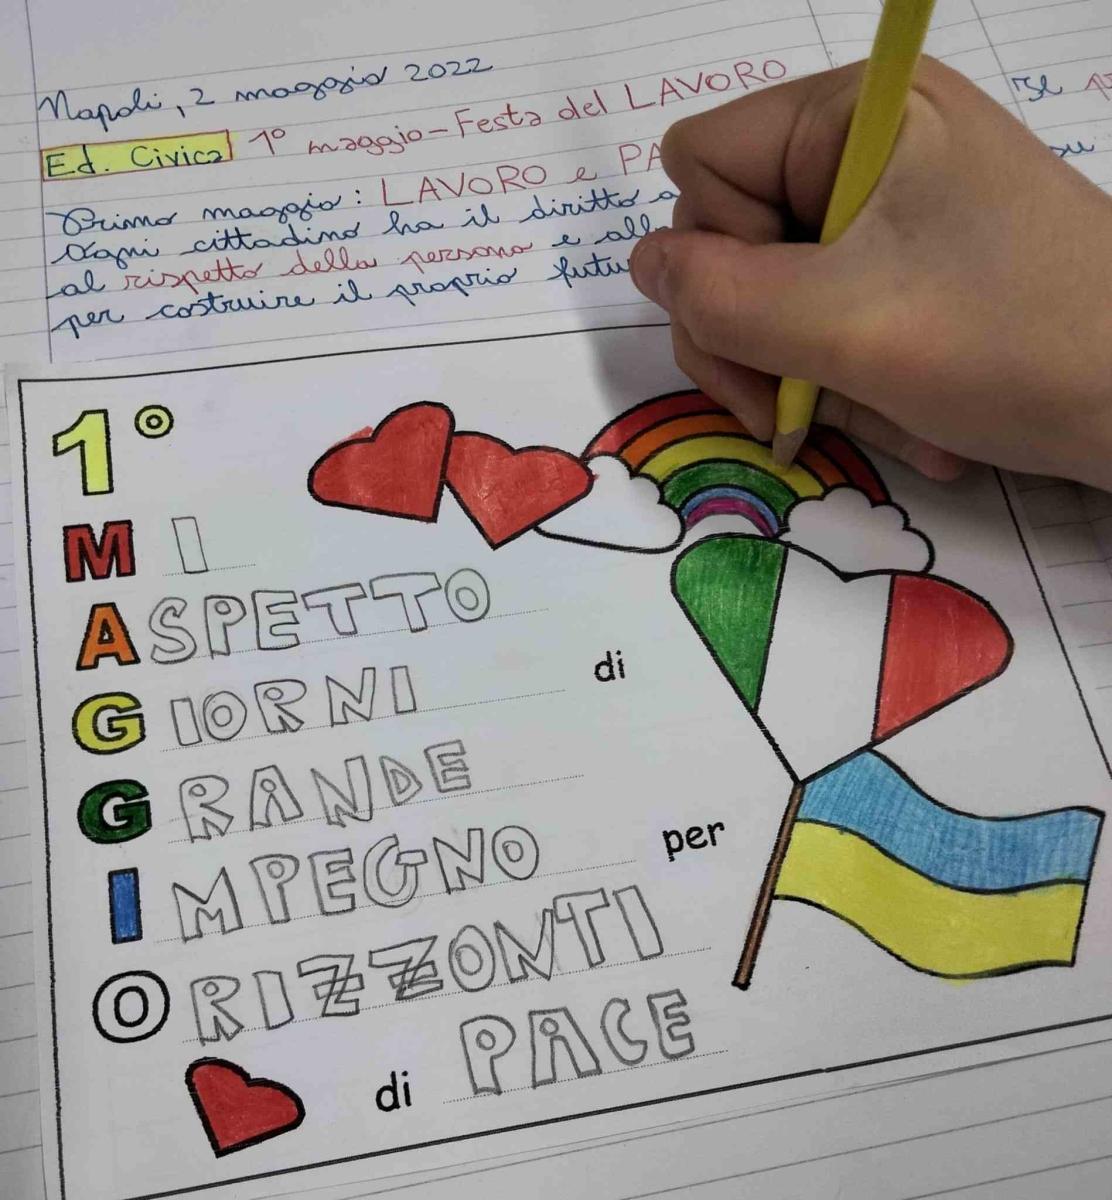 Napoli, 2 maggio 2022
Ed. Civica 1° maggio - Festa del LAVORO
Primo maggio: LAVORO e PA
Ogni cittadino ha il diritto a
al rispetto della persona e alla
per costruire il proprio futu
1°
MI
ASPETTO
GIORNI di
GRANDE
IMPEGNO per
ORIZZONTI
di PACE